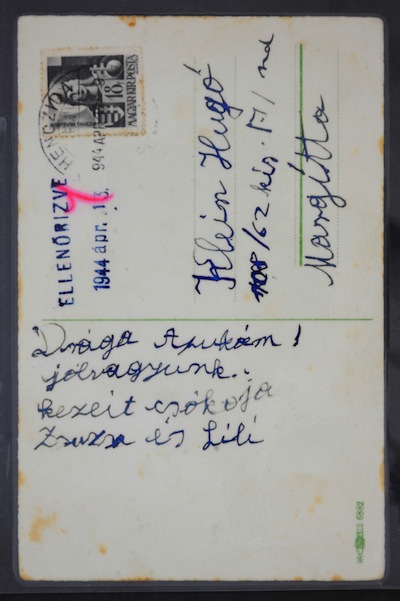 18
MAGYAR KIR. POSTA
HENCZ
944 ÁPR
ELLENŐRIZVE
1944 ápr. 13.
Klein Hugó
108/62 kis. M/ nd
Margitta
Drága Apukám!
jólvagyunk.
kezeit csókolja
Zsuzsa és Lili
6882